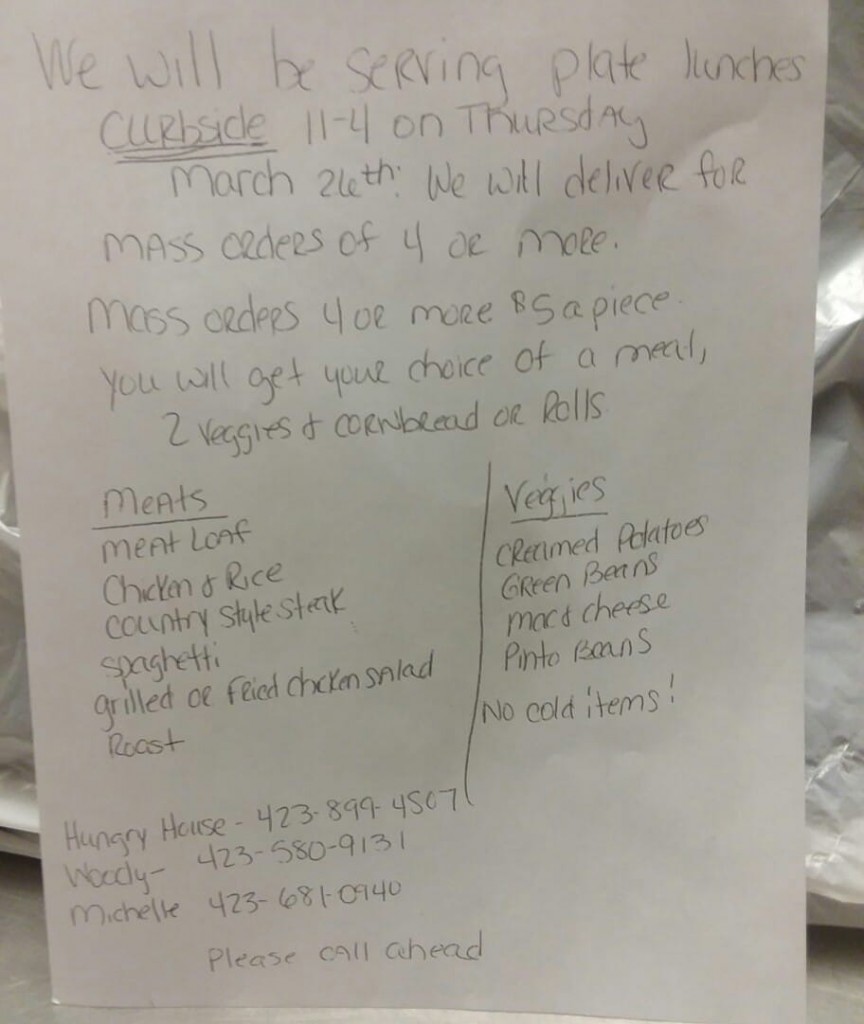 We will be serving plate lunches
Curbside 11-4 on Thursday
March 26th: We will deliver for
mass orders of 4 or more.
Mass orders 4 or more $5 a piece.
You will get your choice of a meal,
2 Veggies & cornbread or Rolls
Meats
Meat Loaf
Chicken & Rice
Country Style Steak
Spaghetti
grilled or fried chicken salad
Roast
Veggies
Creamed Potatoes
Green Beans
mac & cheese
Pinto Beans
No cold items!
Hungry House - 423-899-4507
Woody - 423-580-9131
Michelle 423-681-0940
Please call ahead